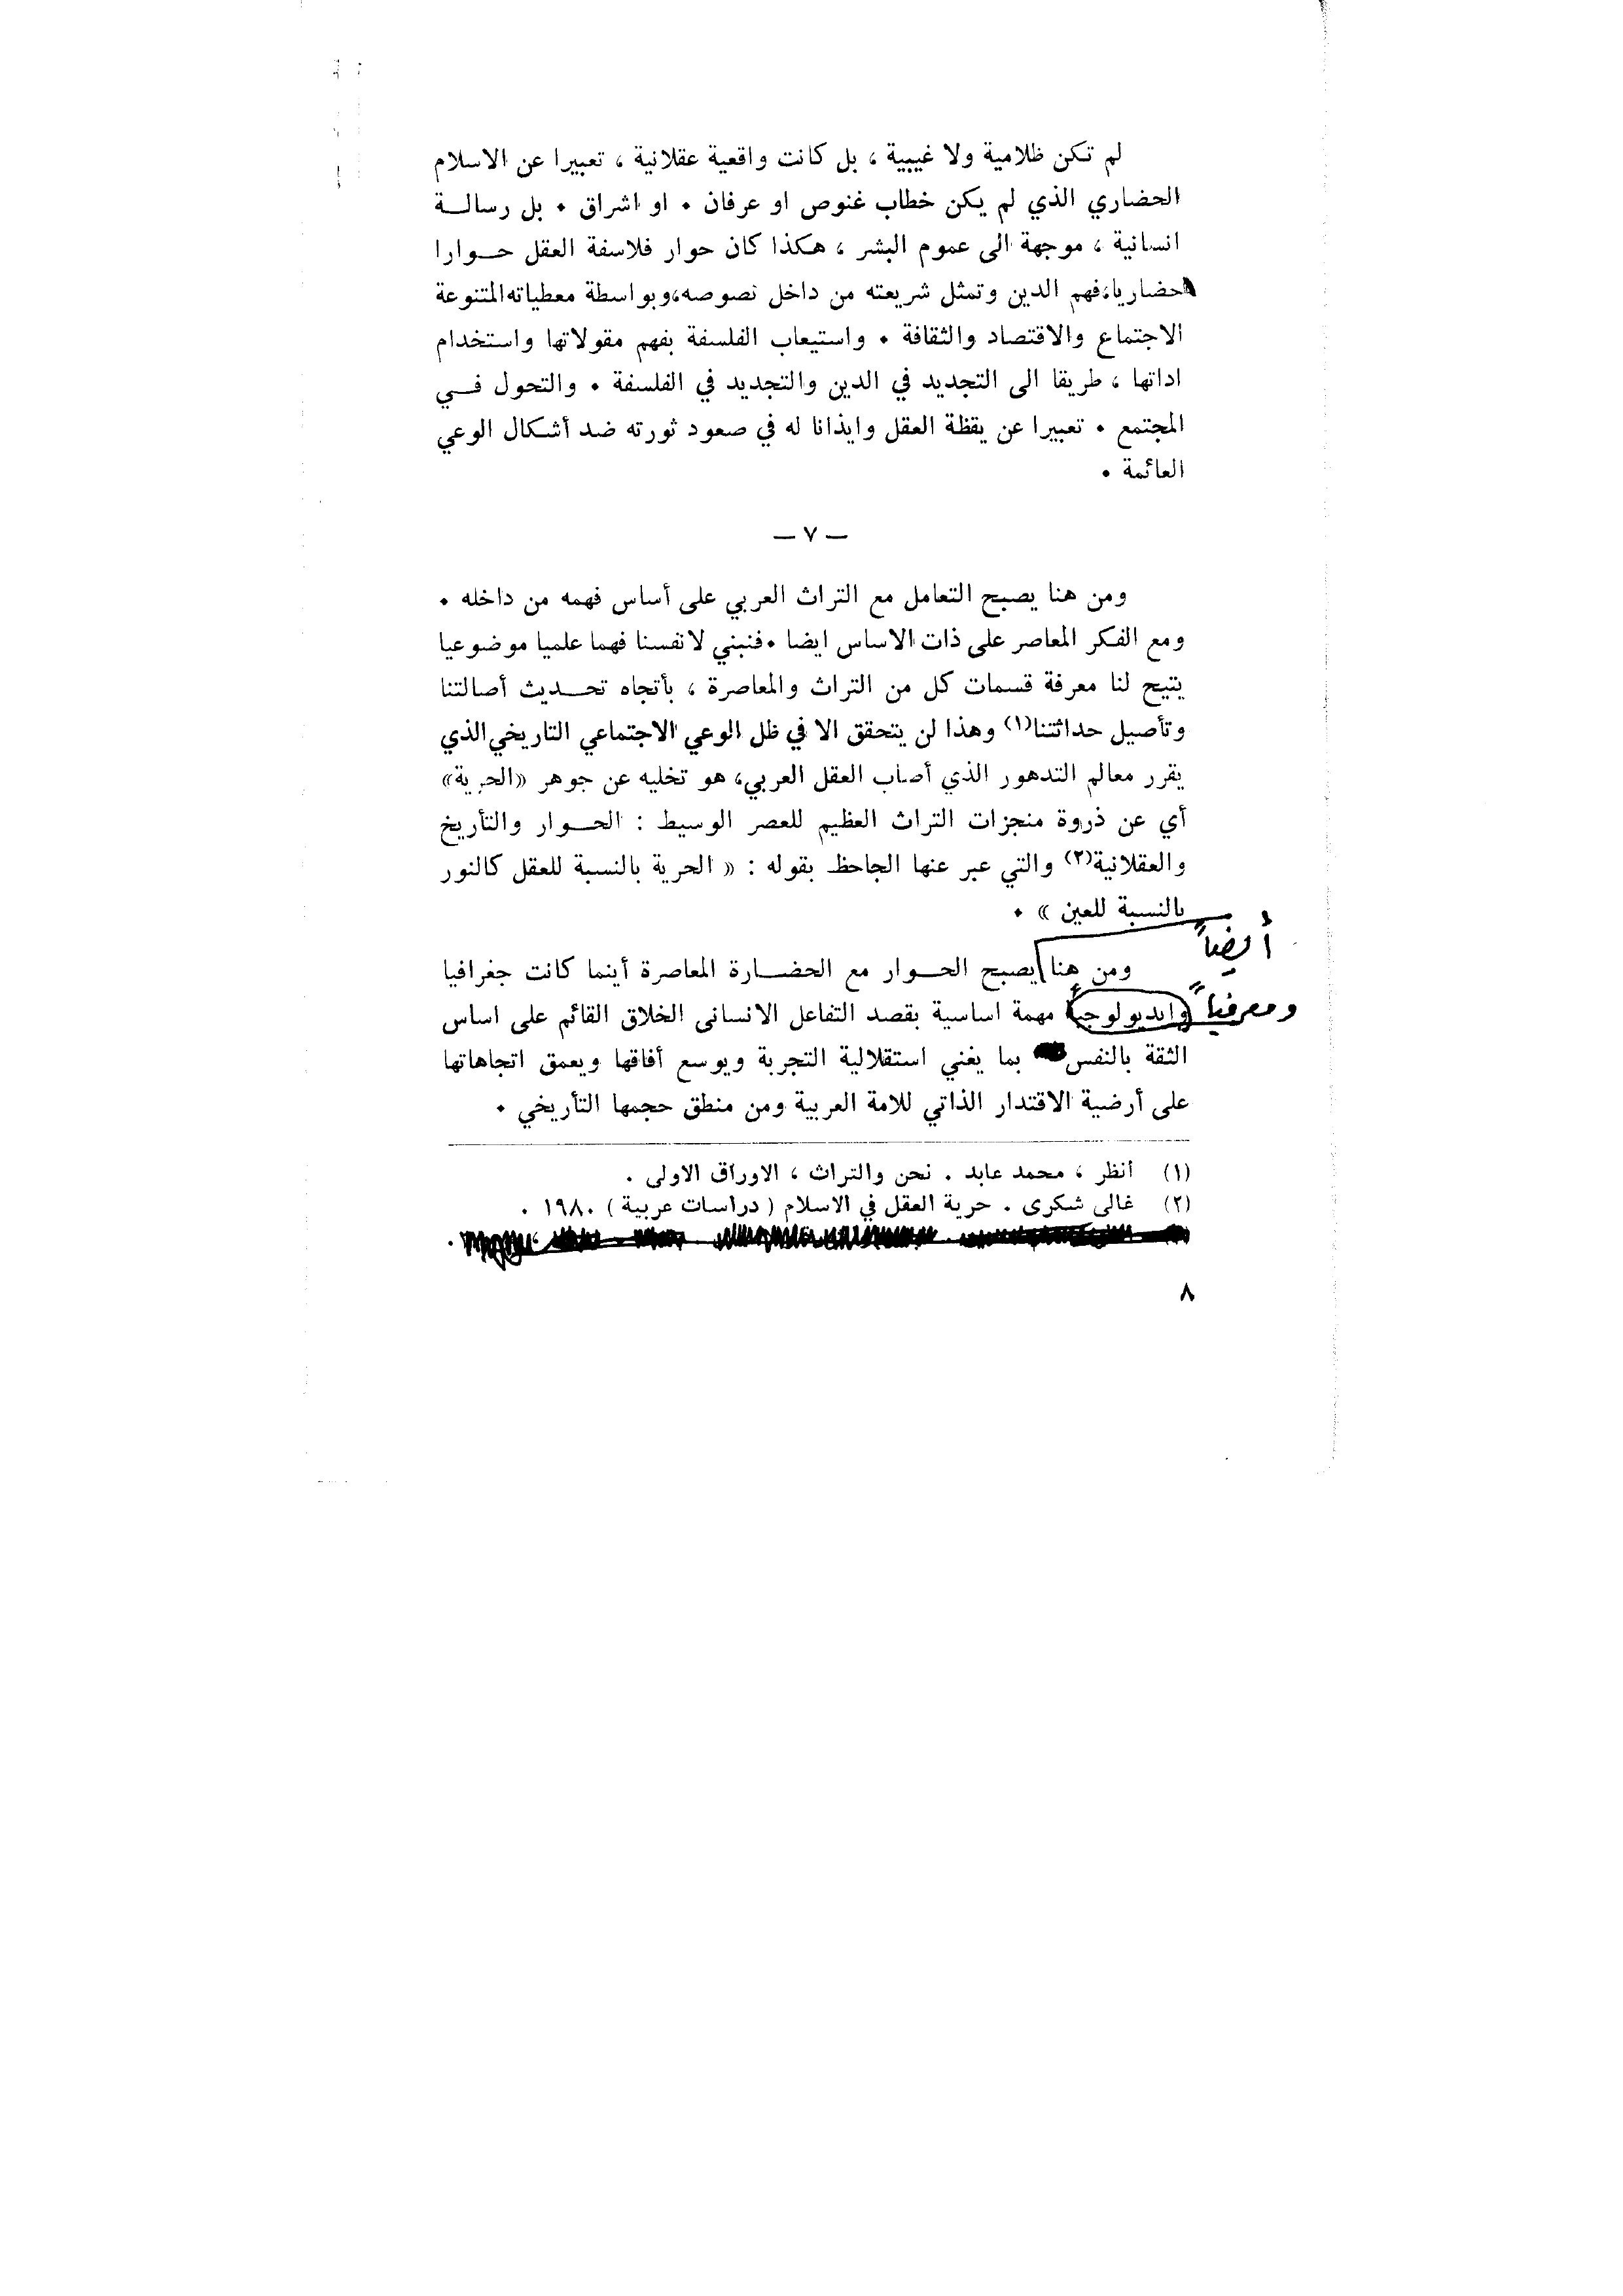 لم تكن ظلامية ولا غيبية ، بل كانت واقعية عقلانية ، تعبيرا عن الاسلام
الحضاري الذي لم يكن خطاب غنوص او عرفان ٠ او اشراق ٠ بل رسالـــة
انسانية ، موجهة الى عموم البشر ، هكذا كان حوار فلاسفة العقل حـــوارا
حضاريا،فهم الدين وتمثل شريعته من داخل نصوصه،وبواسطة معطياته المتنوعة
الاجتماع والاقتصاد والثقافة ٠ واستيعاب الفلسفة بفهم مقولاتها واستخدام
اداتها ، طريقا الى التجديد في الدين والتجديد في الفلسفة ٠ والتحول فـــي
المجتمع ٠ تعبيرا عن يقظة العقل وايذانا له في صعود ثورته ضد أشكال الوعي
العائمة ٠
— ٧ —
ومن هنا يصبح التعامل مع التراث العربي على أساس فهمه من داخله ٠
ومع الفكر المعاصر على ذات الاساس ايضا ٠فنبني لانفسنا فهما علميا موضوعيا
يتيح لنا معرفة قسمات كل من التراث والمعاصرة ، بأتجاه تحـــديث أصالتنا
وتأصيل حداثتنا(١) وهذا لن يتحقق الا في ظل الوعي الاجتماعي التاريخي الذي
يقرر معالم التدهور الذي أصاب العقل العربي، هو تخليه عن جوهر «الحرية»
أي عن ذروة منجزات التراث العظيم للعصر الوسيط : الحـــوار والتأريخ
والعقلانية(٢) والتي عبر عنها الجاحظ بقوله : « الحرية بالنسبة للعقل كالنور
بالنسبة للعين » ٠
أيضاً
ومن هنا يصبح الحـــوار مع الحضـــارة المعاصرة أينما كانت جغرافيا
ومعرفياً وايديولوجياً مهمة اساسية بقصد التفاعل الانسانى الخلاق القائم على اساس
الثقة بالنفس بما يغني استقلالية التجربة ويوسع أفاقها ويعمق اتجاهاتها
على أرضية الاقتدار الذاتي للامة العربية ومن منطق حجمها التأريخي ٠
(١) أنظر ، محمد عابد . نحن والتراث ، الاوراق الاولى .
(٢) غالى شكرى . حرية العقل في الاسلام ( دراسات عربية ) ١٩٨٠ .
٨